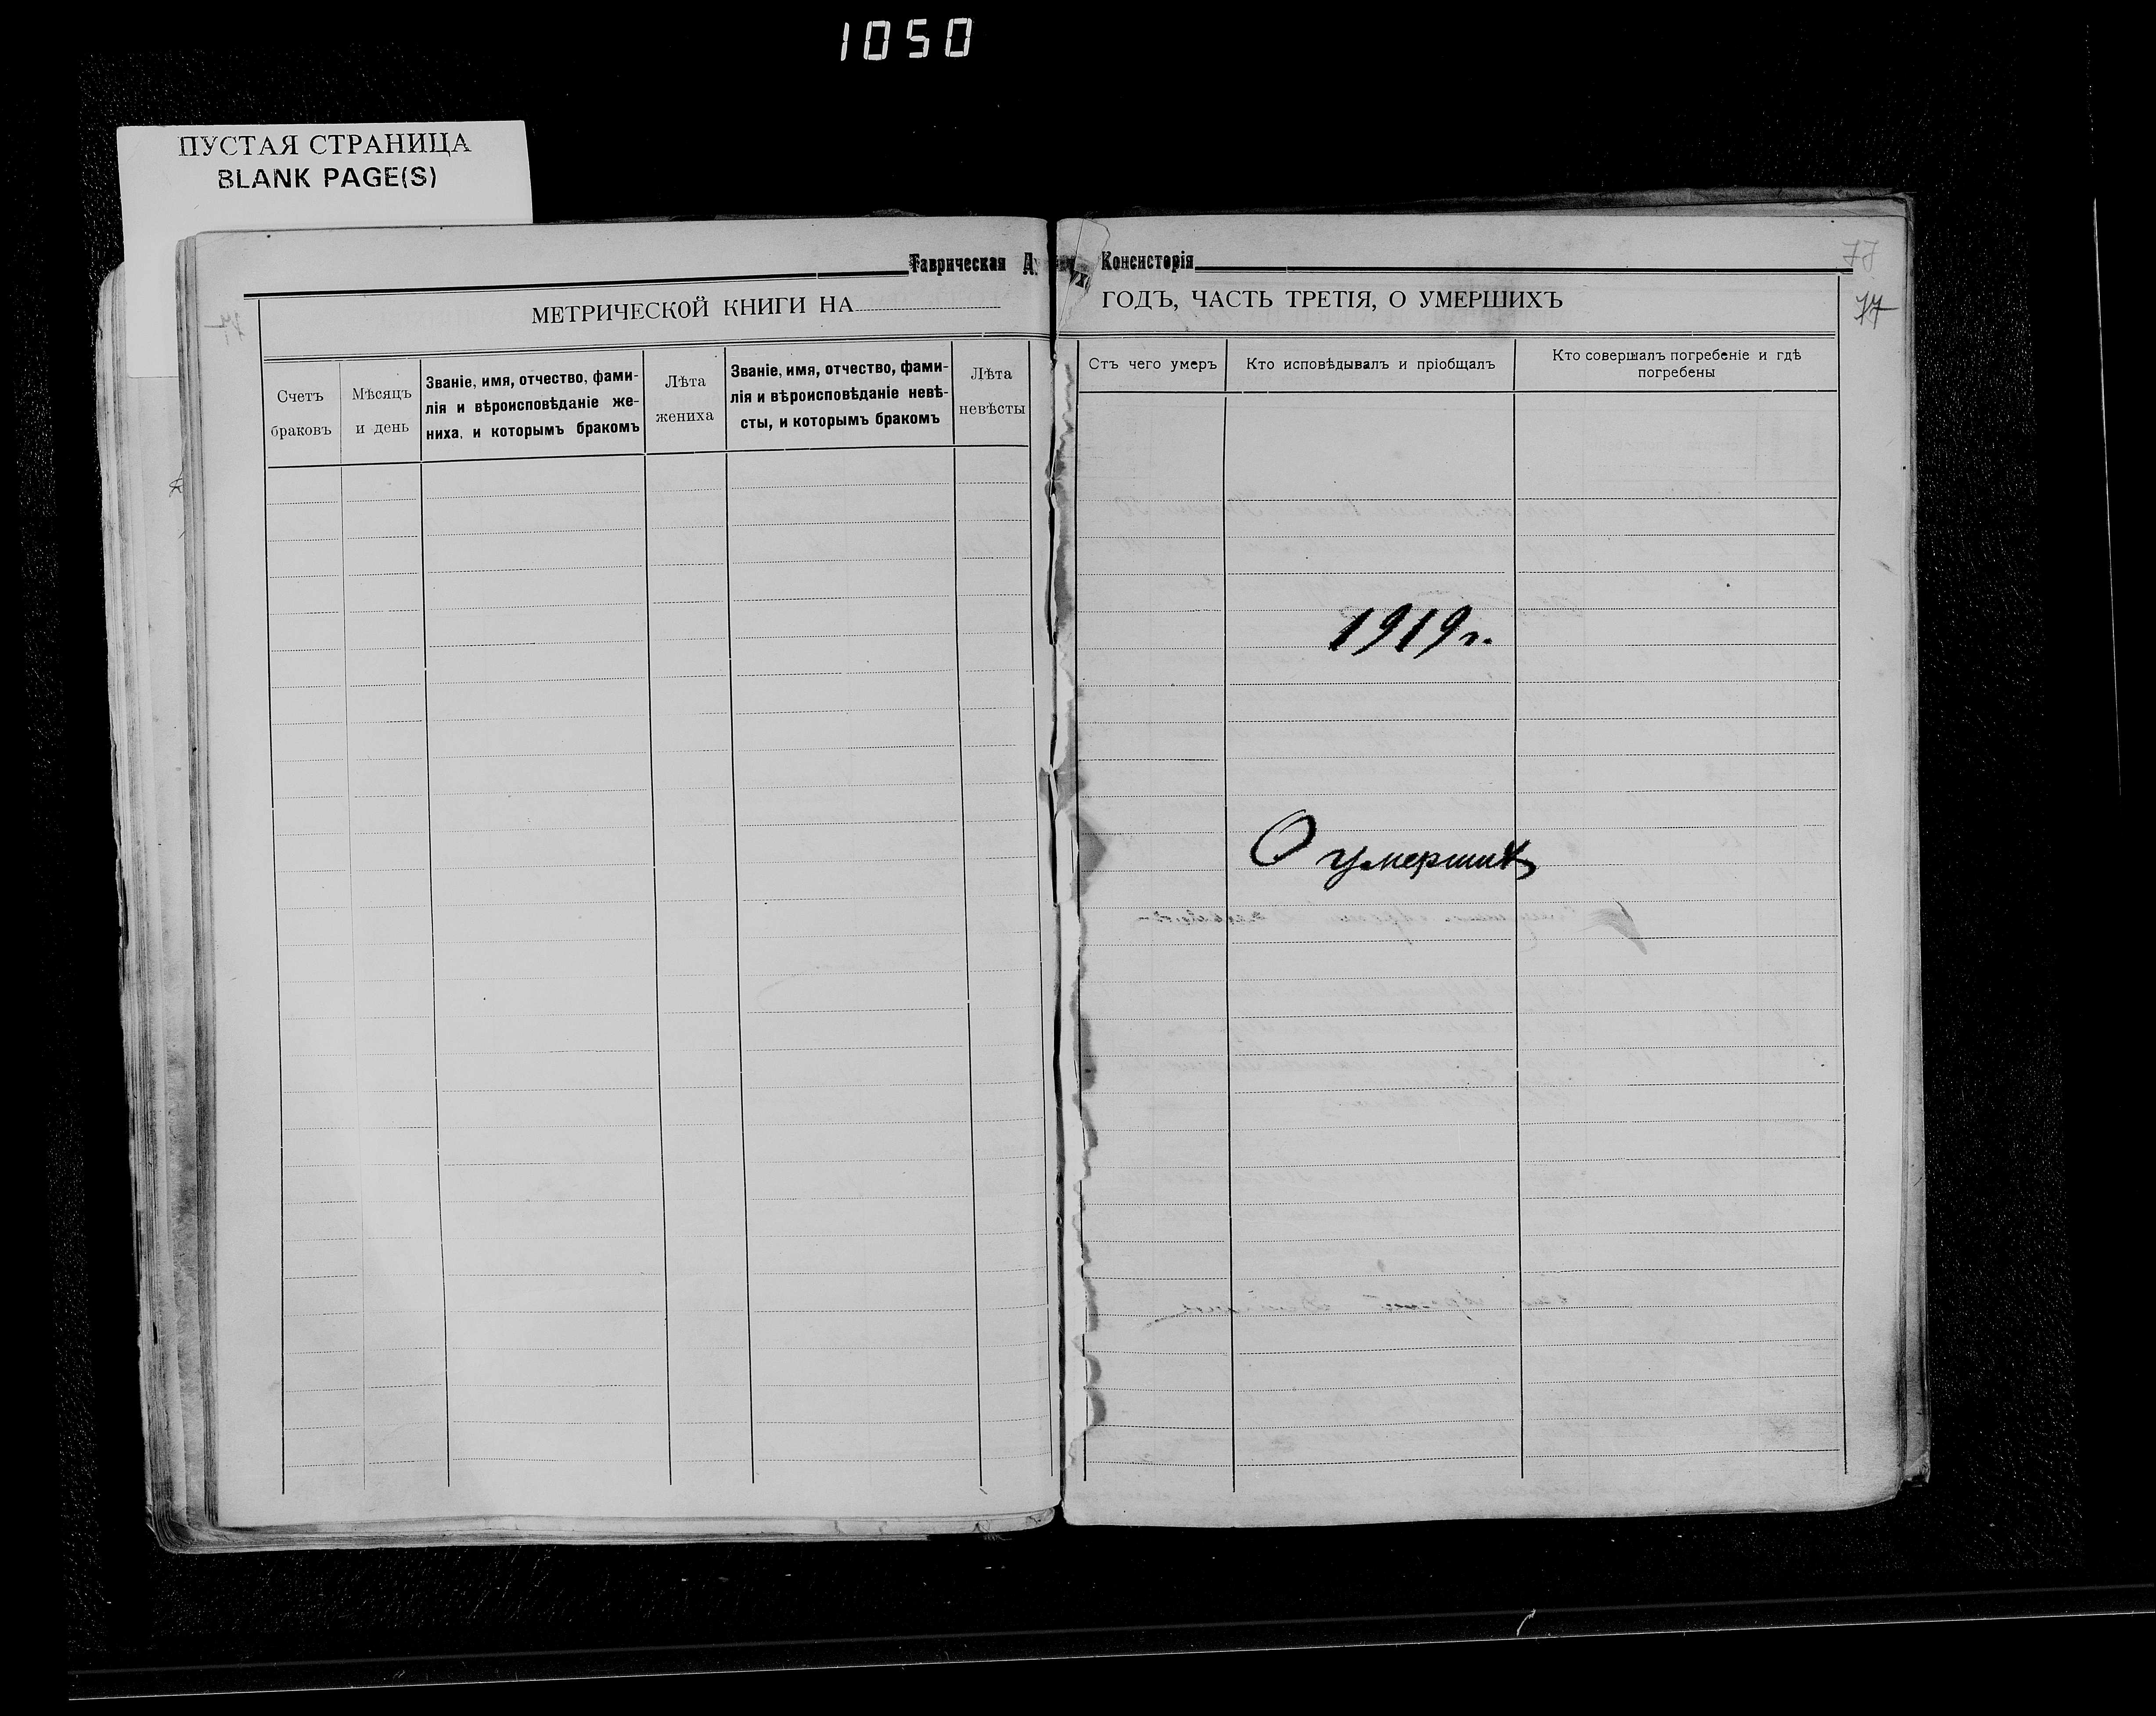 1050
ПУСТАЯ СТРАНИЦА
BLANK PAGE(S)
Таврическая Д
Консисторія
МЕТРИЧЕСКОЙ КНИГИ НА
ГОДЪ, ЧАСТЬ ТРЕТІЯ, О УМЕРШИХЪ
77
Счетъ
браковъ
Мѣсяцъ
и день
Званіе, имя, отчество, фами-
лія и вѣроисповѣданіе же-
ниха, и которымъ бракомъ
Лѣта
жениха
Званіе, имя, отчество, фами-
лія и вѣроисповѣданіе невѣ-
сты, и которымъ бракомъ
Лѣта
невѣсты
Отъ чего умеръ
Кто исповѣдывалъ и пріобщалъ
Кто совершалъ погребеніе и гдѣ
погребены
1919 г.
О умерших